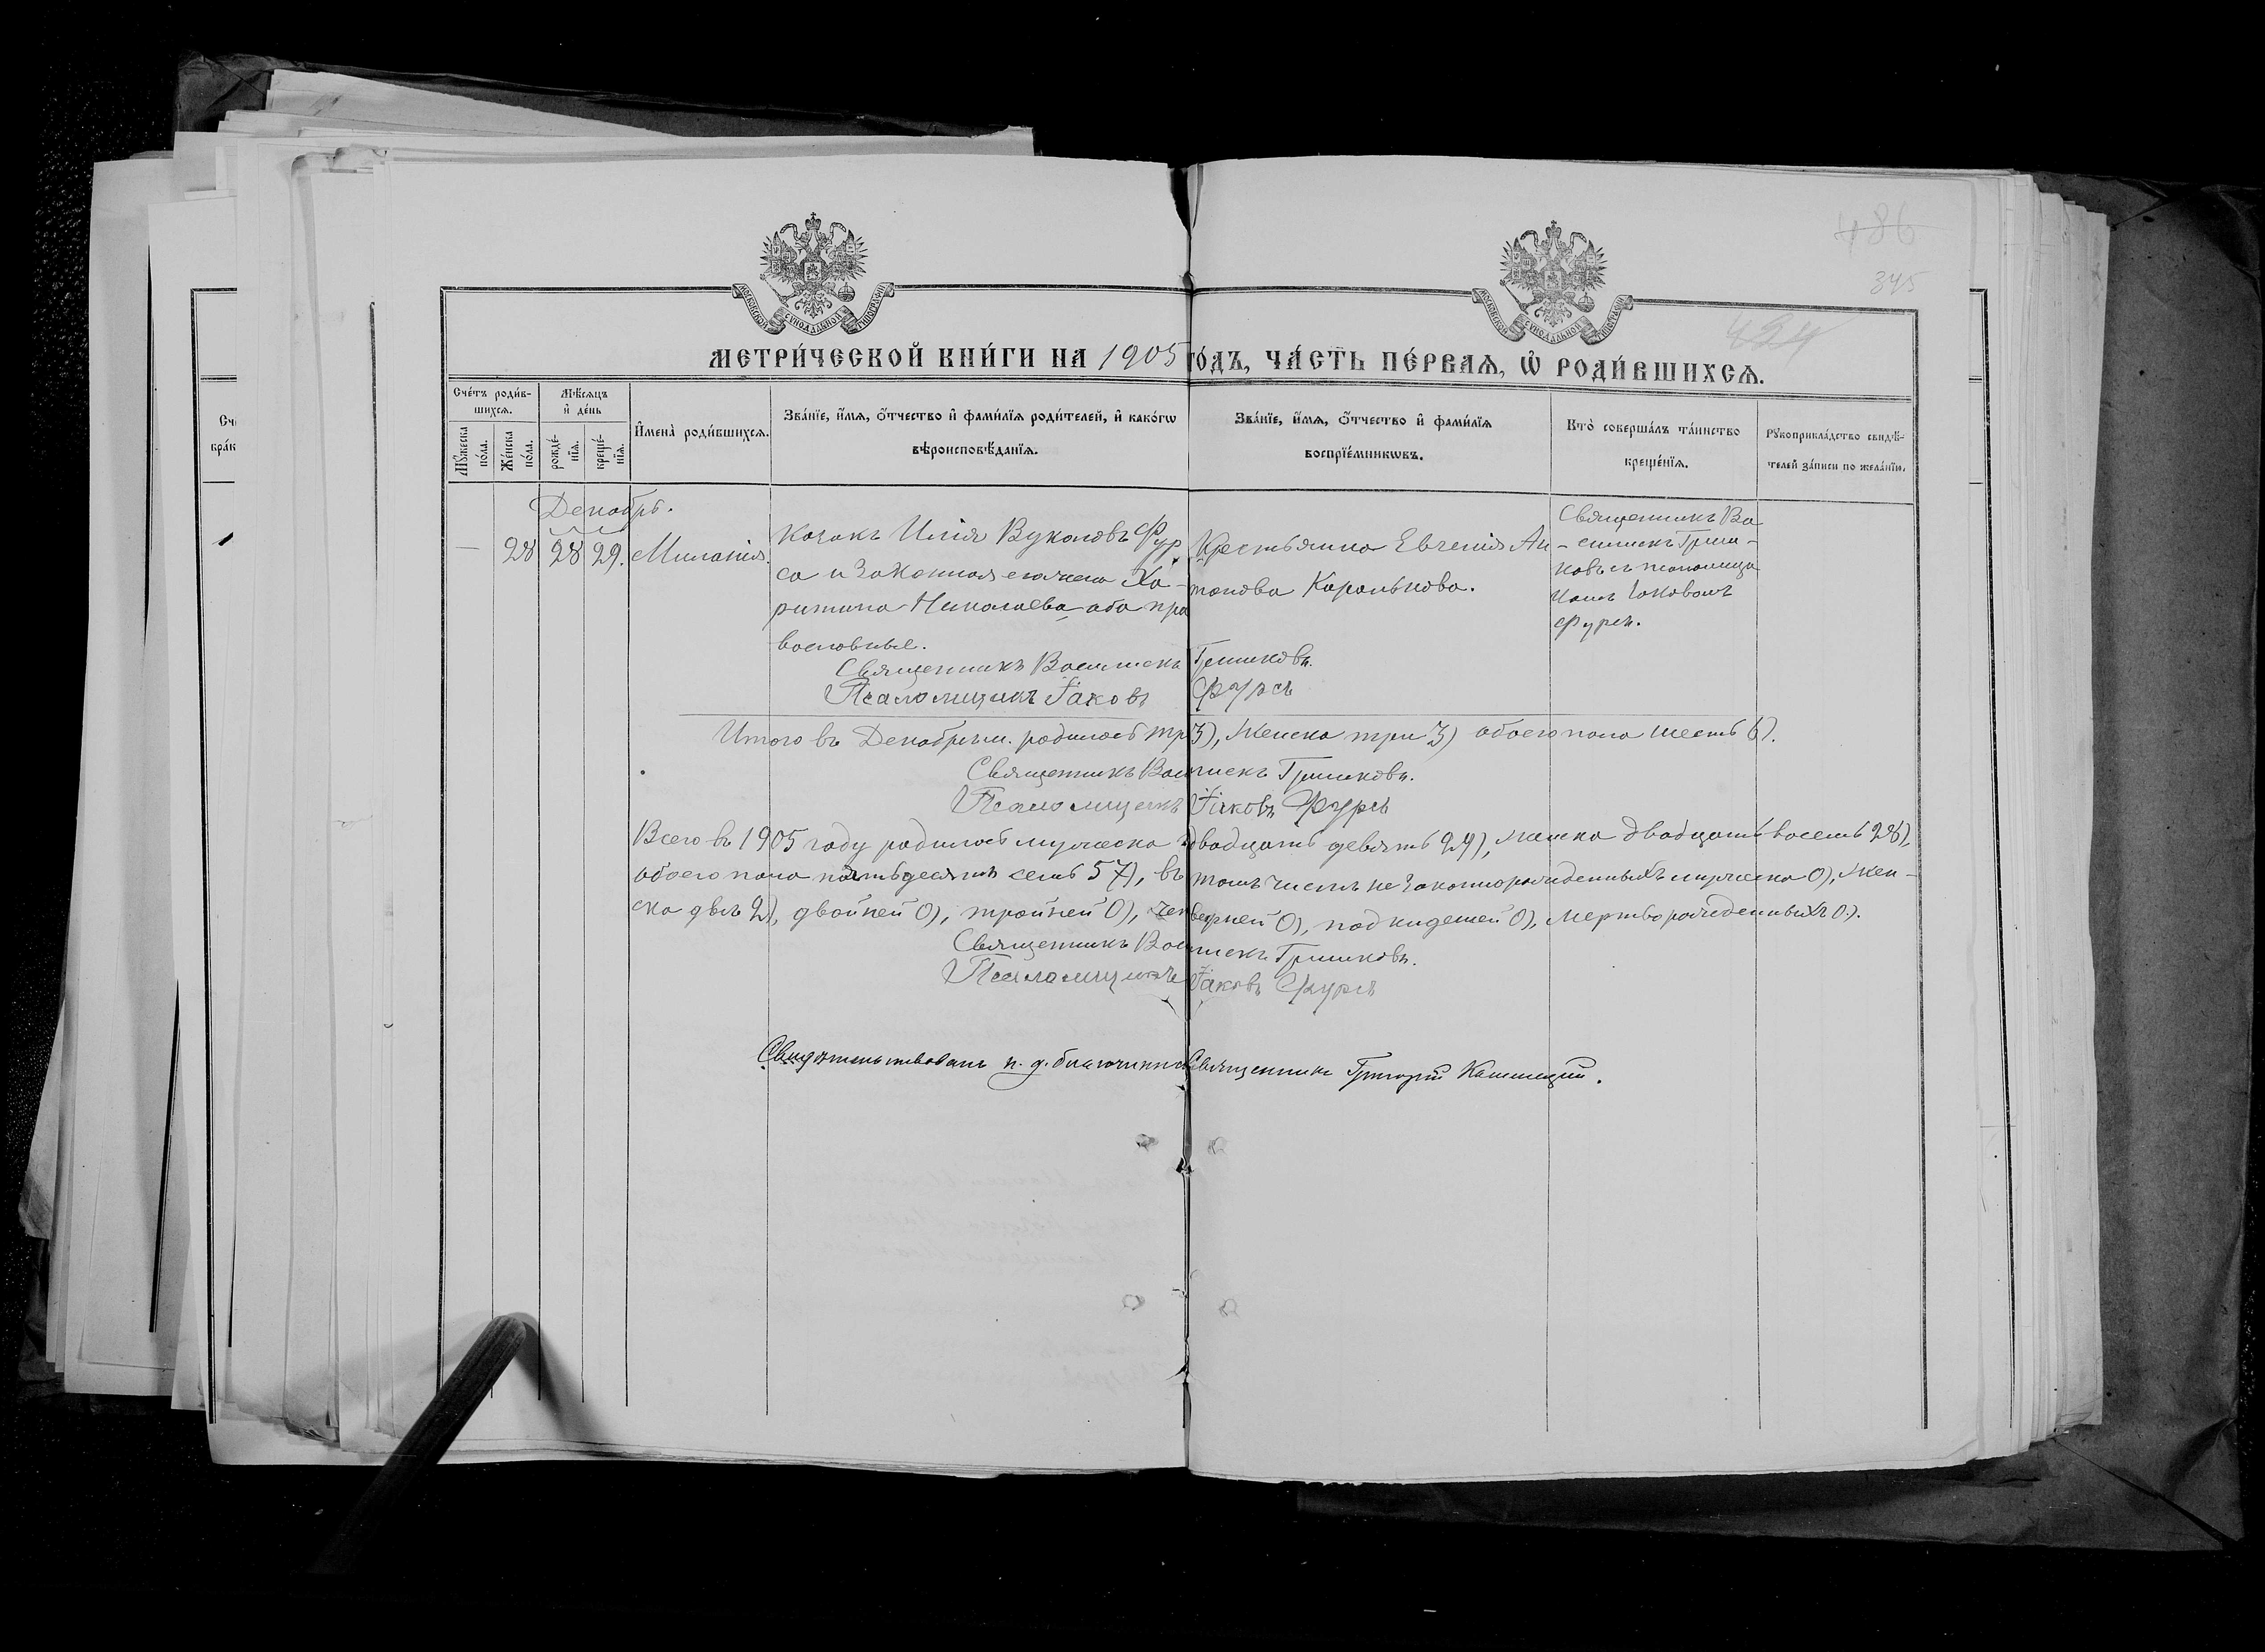 486
345
434
МОСКОВСКОЙ СѴНОДАЛЬНОЙ ТИПОГРАФІИ
МОСКОВСКОЙ СѴНОДАЛЬНОЙ ТИПОГРАФІИ
МЕТРИ́ЧЕСКОЙ КНИ́ГИ НА 1905 ГО́ДЪ, ЧА́СТЬ ПЕ́РВАЯ, Ѡ҆ РОДИ́ВШИХСЯ.
Сче́тъ роди́в-
шихся.
Мѣ́сяцъ
и҆ де́нь
Мꙋ́жеска
по́ла.
Же́нска
по́ла.
рожде́-
нїя.
креще́-
нїя.
И҆мена̀ роди́вшихся.
Зва́нїе, и҆́мя, ѻ҆́тчество и҆ фами́лїя роди́телей, и҆ како́гѡ
вѣроисповѣ́данїя.
Зва́нїе, и҆́мя, ѻ҆́тчество и҆ фами́лїя
воспрїе́мникѡвъ.
Кто̀ соверша́лъ та́инство
креще́нїя.
Рꙋкоприкла́дство свидѣ́-
телей за́писи по жела́нїю.
Сч
бра́к
Декабрь.
— 28 28 29. Миланія.
Козакъ Илія Вуколовъ Фур
са и законная его жена Ха-
ритина Николаева, оба пра
вославные.
Крестьянка Евгенія Ан
тонова Королькова.
Священникъ Ва
-силискъ Гриш-
ковъ съ псаломщи
комъ Іаковомъ
Фурса.
Священникъ Василискъ Гришковъ.
Псаломщикъ Іаковъ Фурсъ
Итого въ Декабрѣ м. родилось тр 3), женска три 3) обоего пола шесть 6).
Священникъ Василискъ Гришковъ.
Псаломщикъ Іаковъ Фурсъ
Всего въ 1905 году родилось мужеска двадцать девять 29), женска двадцать восемь 28),
обоего пола пятьдесятъ семь 57), въ томъ числѣ незаконнорожденныхъ мужеска 0), жен-
ска двѣ 2), двойней 0), тройней 0), четверней 0), подкидышей 0), мертворожденныхъ 0).
Священникъ Василискъ Гришковъ.
Псаломщикъ Іаковъ Фурсъ
Свидѣтельствовалъ и. д. благочиннаго Священникъ Григорій